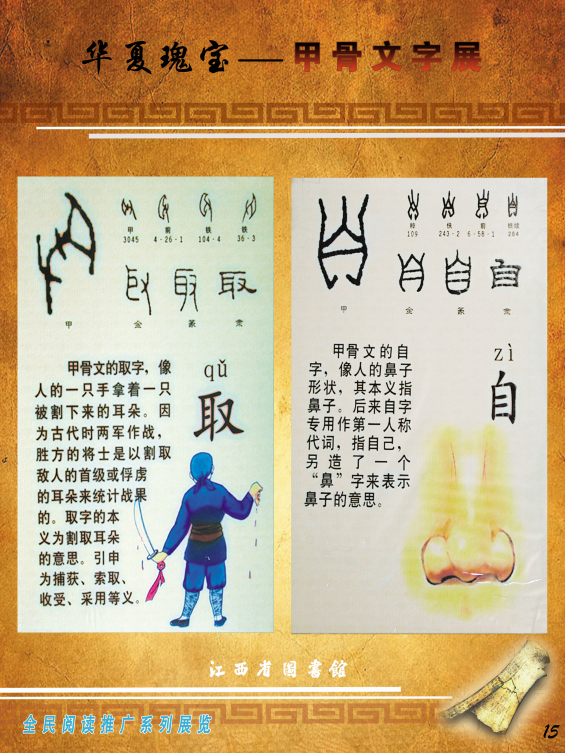 华夏瑰宝——甲骨文字展
甲 前 铁 铁
3045 4·26·1 104·4 36·3
甲 金 篆
qǔ
取
甲骨文的取字，像
人的一只手拿着一只
被割下来的耳朵。因
为古代时两军作战，
胜方的将士是以割取
敌人的首级或俘虏
的耳朵来统计战果
的。取字的本
义为割取耳朵
的意思。引申
为捕获、索取、
收受、采用等义。
佚 前
109 243·2 6·58·1 264
甲 金 篆
zì
自
甲骨文的自
字，像人的鼻子
形状，其本义指
鼻子。后来自字
专用作第一人称
代词，指自己，
另造了一个
“鼻”字来表示
鼻子的意思。
江西省图書館
全民阅读推广系列展览
15